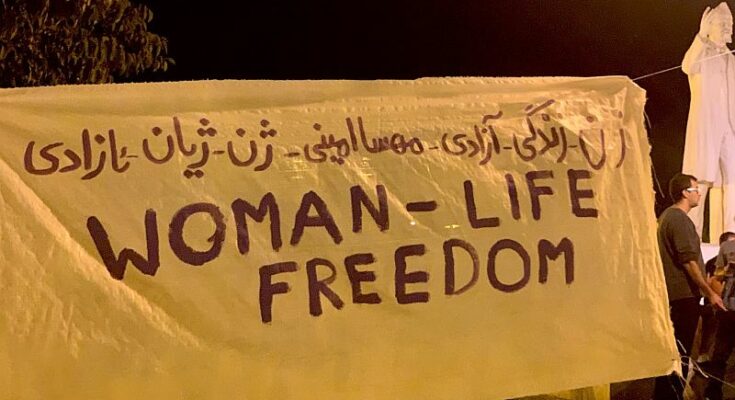 زن - زندگی - آزادی - مهسا امینی - ژن - ژیان - ئازادی
WOMAN - LIFE
FREEDOM